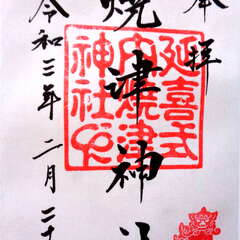 奉拝
焼津神
令和三年二月二十
延喜式
内焼津
神社